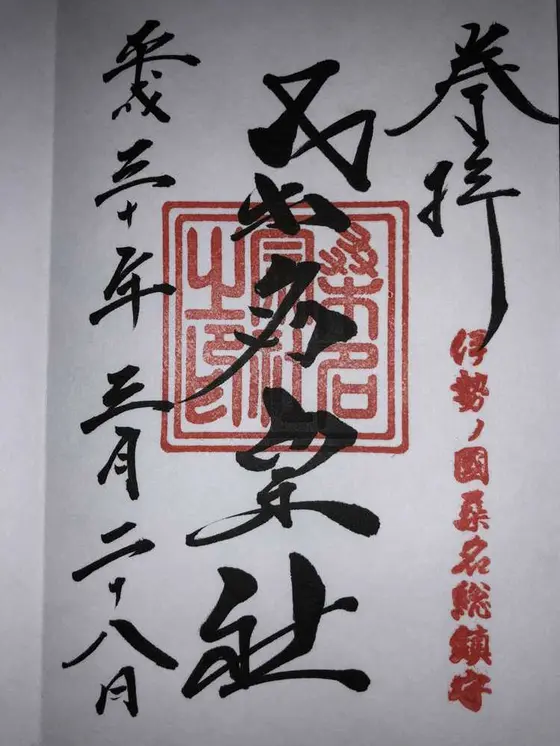 奉拝
伊勢ノ國桑名総鎮守
桑名宗社
桑名
宗社
之印
平成三十年三月二十八日